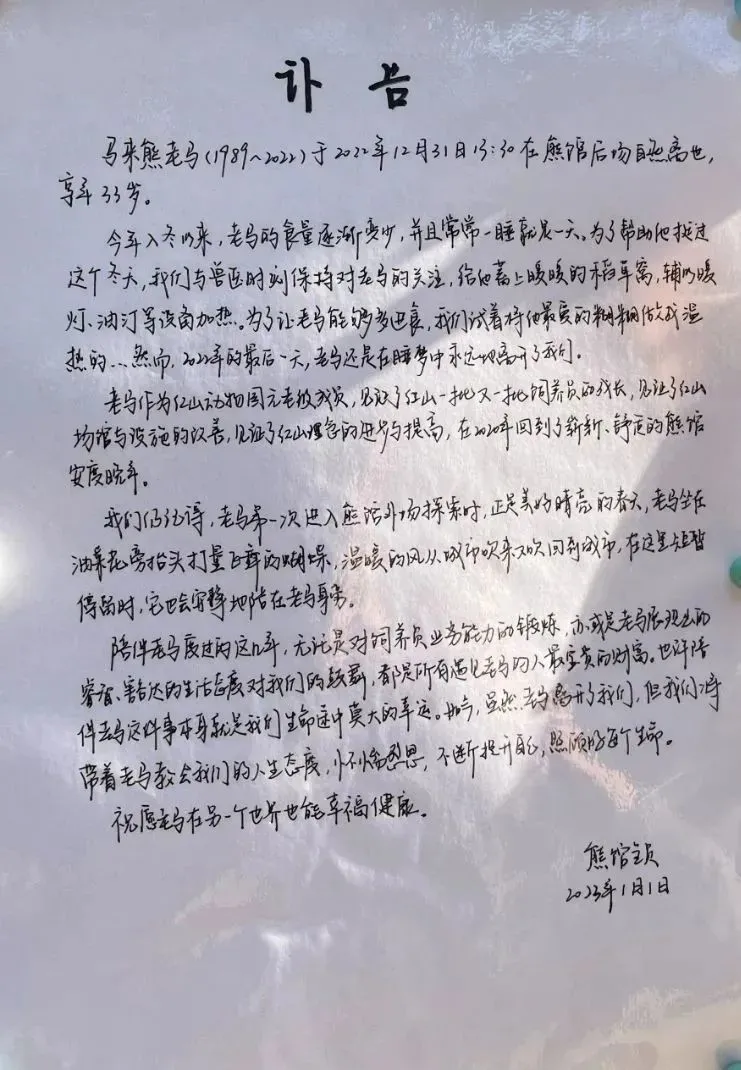 讣 告
马来熊老马(1989~2022)于2022年12月31日13:30在熊馆后场自然离世,
享年33岁。
今年入冬以来,老马的食量逐渐变少,并且常常一睡就是一天。为了帮助他挺过
这个冬天,我们与兽医时刻保持对老马的关注,给他蓄上暖暖的稻草窝,辅以暖
灯、油汀等设备加热。为了让老马能够多进食,我们试着将他最爱的糊糊做成温
热的...然而,2022年的最后一天,老马还是在睡梦中永远地离开了我们。
老马作为红山动物园元老级成员,见证了红山一批又一批饲养员的成长,见证了红山
场馆与设施的改善,见证了红山理念的进步与提高,在2020年回到了崭新、舒适的熊馆
安度晚年。
我们仍记得,老马第一次进入熊馆外场探索时,正是美好晴亮的春天,老马坐在
油菜花旁抬头打量飞舞的蝴蝶,温暖的风从城市吹来又吹回到城市,在这里短暂
停留时,它也会安静地陪在老马身旁。
陪伴老马度过的这几年,无论是对饲养员业务能力的锻炼,亦或是老马展现出的
睿智、豁达的生活态度对我们的鼓舞,都是所有遇见老马的人最宝贵的财富。也许陪
伴老马这件事本身就是我们生命途中莫大的幸运。如今,虽然老马离开了我们,但我们将
带着老马教会我们的人生态度,不断提升自己,照顾好每个生命。
祝愿老马在另一个世界也能幸福健康。
熊馆全员
2023年1月1日